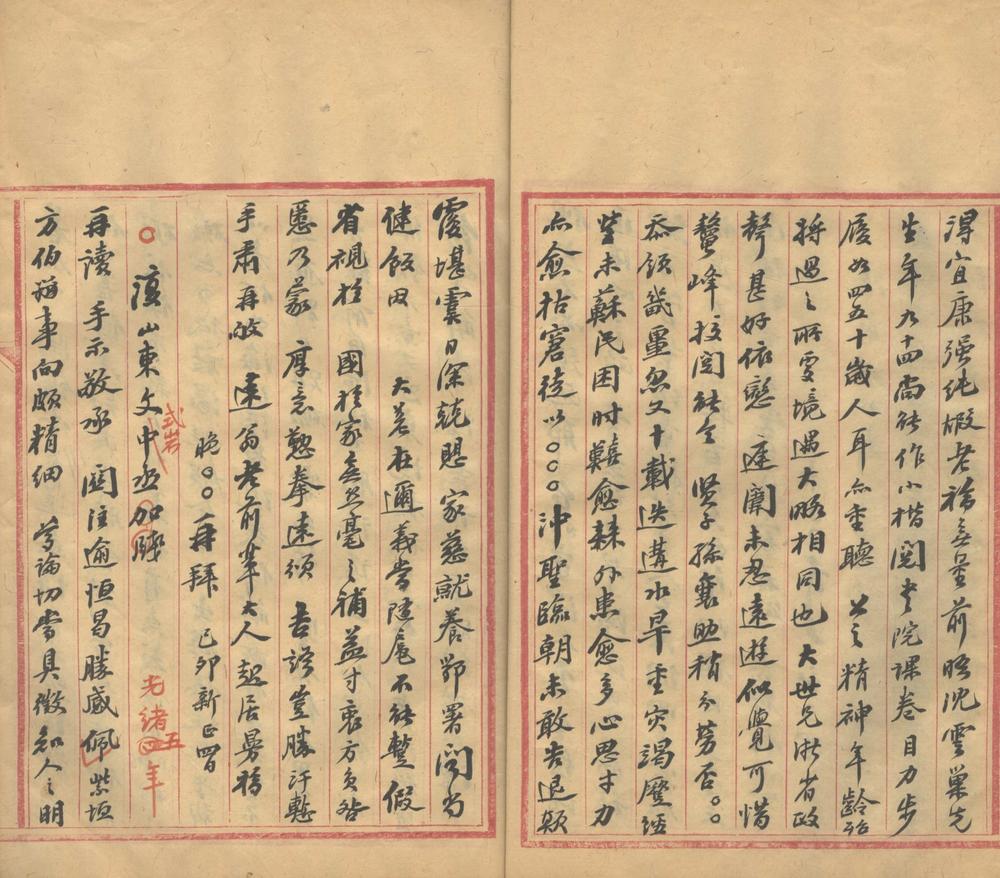 得宜康强純嘏老福無量前晤沈雲巢先
生年九十四尚能作小楷閱書院課卷目力步
履如四五十歲人耳亦重聽 公之精神年齡殆
將過之所雯境遇大略相同也大世兄浙省政
聲甚好依戀 庭闈未忍遠遊似覺可惜
鰲峰校閱能令 賢子孫襄助稍分勞否○○
忝領畿畺忽又十載迭遘水旱重灾渴蹷經
營未蘇民困时艱愈棘外患愈多心思才力
亦愈枯窘徒以○○○沖聖臨朝未敢告退頹
靡堪虞日深兢惕 家慈就養鄂署閤尚
健飯毋 大著在邇義當隨扈不能暫假
省視於 國於家無絲毫之補益寸衷方負咎
慝乃蒙 厚意懃拳遠頌 吉語豈勝汗慙
手肅再敂 遠翁老前輩大人起居曼福
晚○○再拜 己卯新正四日
○ 復山東文中丞加牘
式岩
光緒四五年
再讀 手示敬承 關注逾恒曷勝感佩紫垣
方伯辦事向頗精細 蓍論切當具徵知人之明